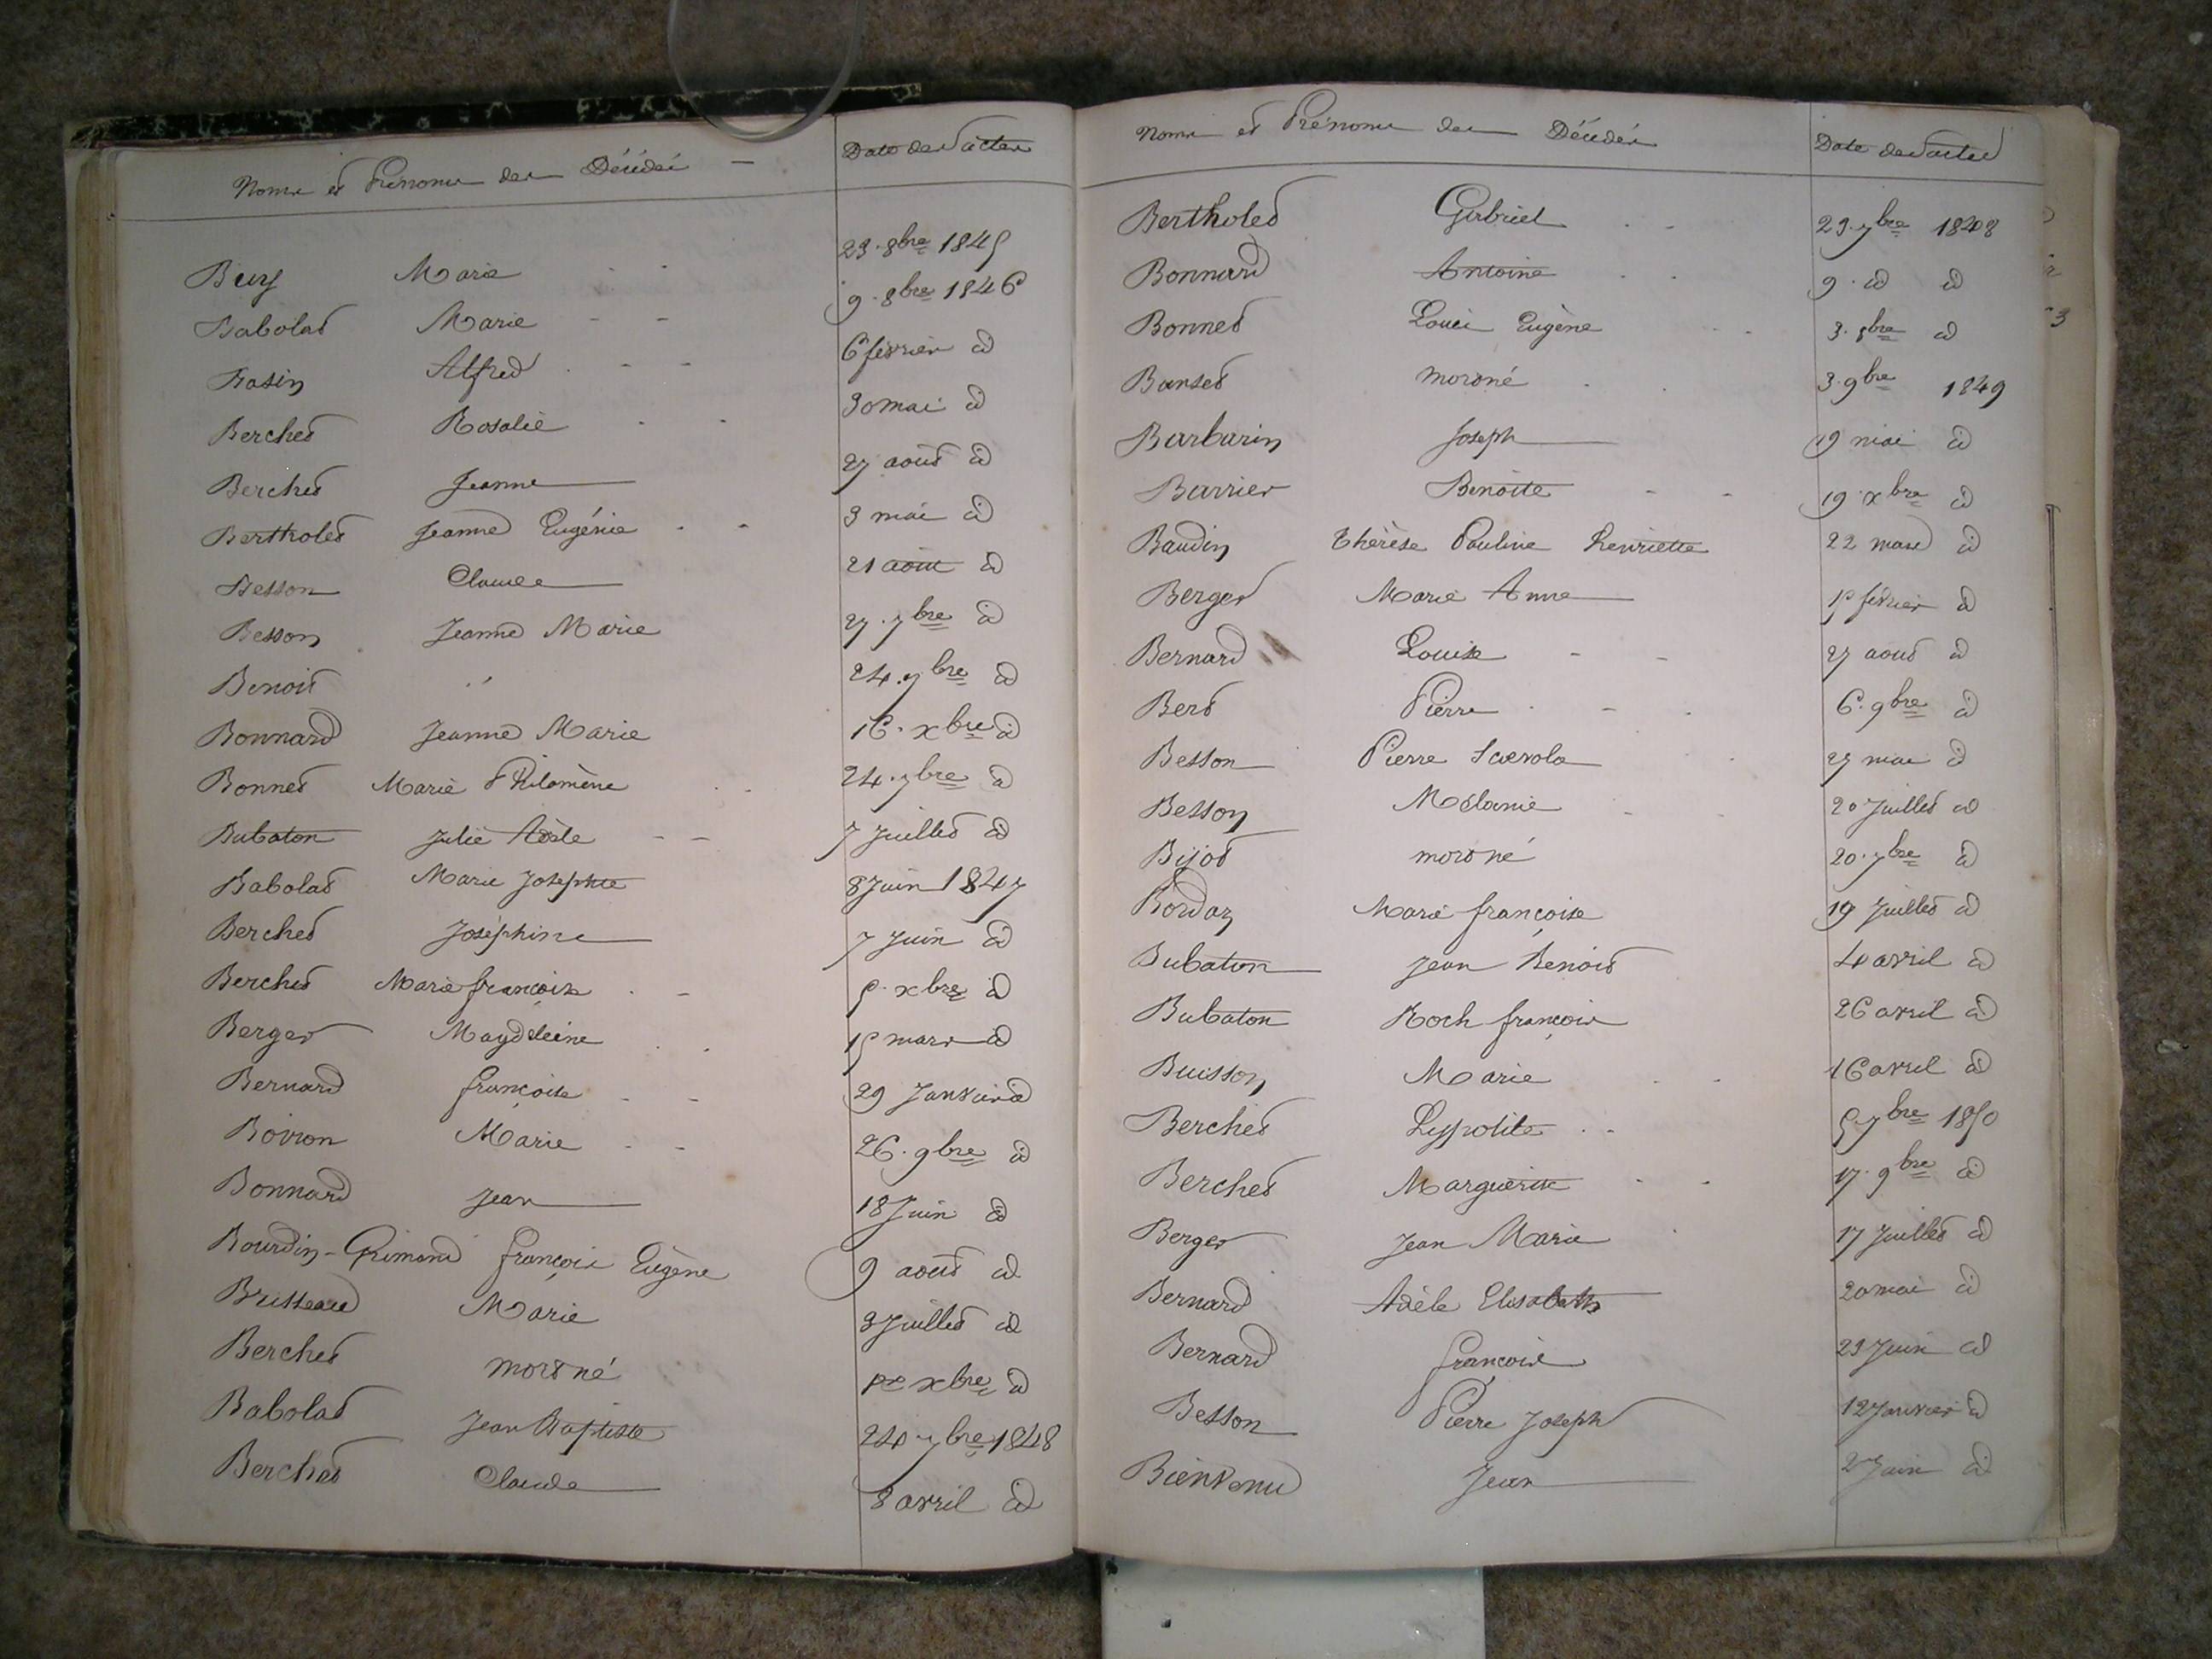 Noms et Prénoms des Décédés — Date des actes
Buy Marie 23. 8bre 1845
Babolat Marie 9. 8bre 1846
Basin Alfred 6 février id
Berchet Rosalie 30 mai id
Berchet Jeanne 27 août id
Bertholet Jeanne Eugénie 3 mai id
Besson Claude 21 août id
Besson Jeanne Marie 27. 7bre id
Benoit " 24. 7bre id
Bonnard Jeanne Marie 16. xbre id
Bonnet Marie Philomène 24. 7bre id
Bubaton Julie Adèle 7 Juillet id
Babolat Marie Josephte 8 Juin 1847
Berchet Joséphine 7 Juin id
Berchet Marie françoise 5. xbre id
Berger Magdeleine 15 mars id
Bernard françoise 29 Janvier id
Boiron Marie 26. 9bre id
Bonnard Jean 18 Juin id
Bourdin-Grimond françois Eugène 9 août id
Marie 3 Juillet id
Berchet mort né 1er xbre id
Babolat Jean Baptiste 24 7bre 1848
Berchet Claude 8 avril id
Noms et Prénoms des Décédés Date des actes
Bertholet Gabriel 29. 7bre 1848
Bonnard Antoine 9. id id
Bonnet Louis Eugène 3. 8bre id
Banset mort né 3. 9bre 1849
Barbarin Joseph 19 mai id
Barrier Benoîte 19. xbre id
Baudin Thérèse Pauline henriette 22 mars id
Berger Marie Anne 15 février id
Bernard Louise 27 août id
Bert Pierre 6. 9bre id
Besson Pierre Scevola 29 mai id
Besson Mélanie 20 Juillet id
Bijot mort né 20. 7bre id
Bordaz Marie françoise 19 Juillet id
Bubaton Jean Benoit 4 avril id
Bubaton Roch françois 26 avril id
Buisson Marie 16 avril id
Berchet hypolite 5 7bre 1850
Berchet Marguerite 17. 9bre id
Berger Jean Marie 17 Juillet id
Bernard Adèle Elisabeth 20 mai id
Bernard françoise 23 Juin id
Besson Pierre Joseph 12 Janvier id
Bienvenu Jean Juin id